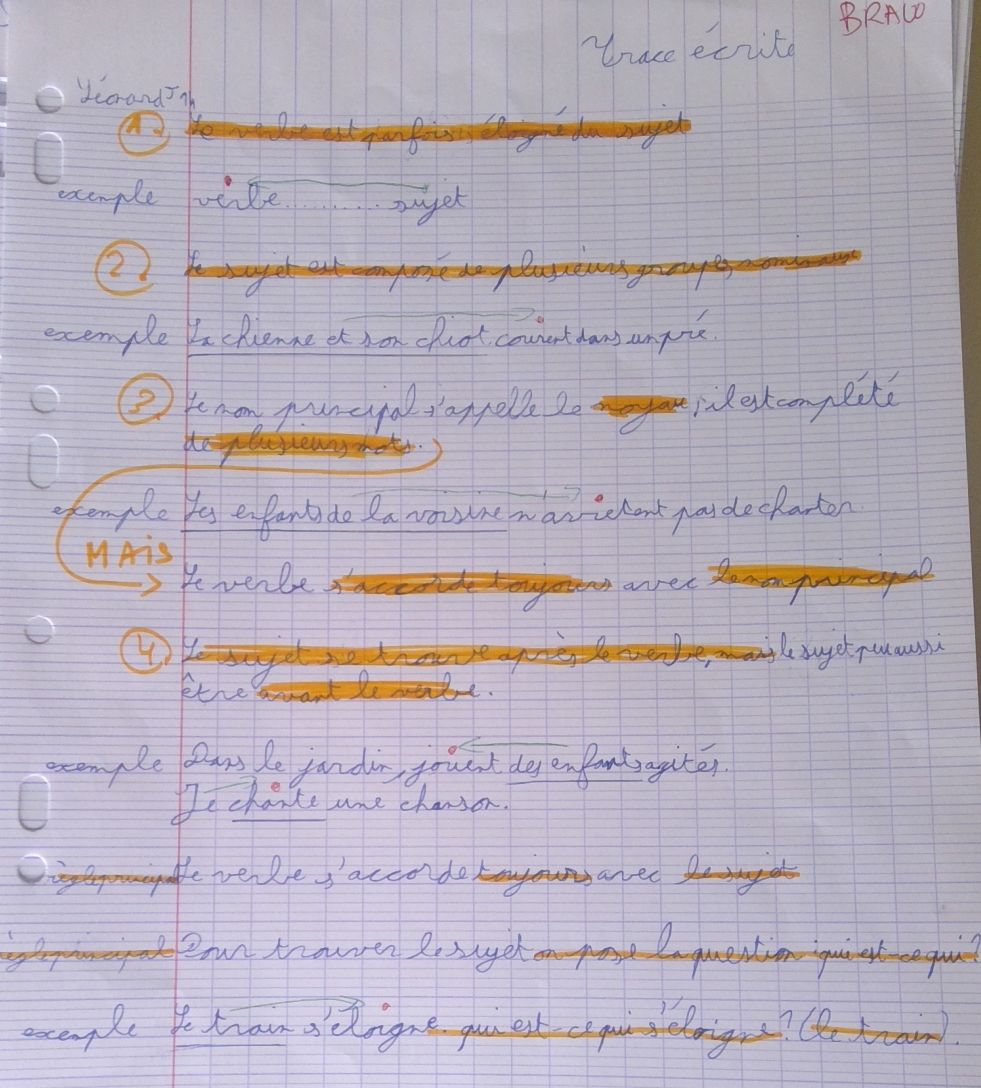 BRAVO
Trace écrite
Léonard
1) Le verbe est parfois éloigné du sujet
exemple verbe.......... sujet
2) Le sujet est composé de plusieurs groupes nominaux
exemple La chienne et son chiot courent dans un pré.
3) Le nom principal s'appelle le noyau ; il est complété
de plusieurs mots.
exemple Les enfants de la voisine n'arrêtent pas de chanter
MAiS
Le verbe s'accorde toujours avec le nom principal
4) Le sujet se trouve après le verbe, mais le sujet peu aussi
être avant le verbe.
exemple Dans le jardin, jouent des enfants agités.
Je chante une chanson.
règle principal Le verbe s'accorde toujours avec le sujet
règle principal Pour trouver le sujet on pose la question : qui est-ce qui?
exemple Le train s'éloigne. qui est-ce qui s'éloigne? (le train).